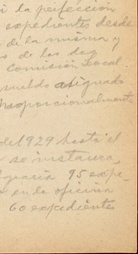 la perfección
expedientes desde
de la misma y
de los dos
Comisión Local
sueldo asignado
proporcionalmente
del 1929 hasta el
se instaura,
95 expe-
en la oficina
60 expedientes